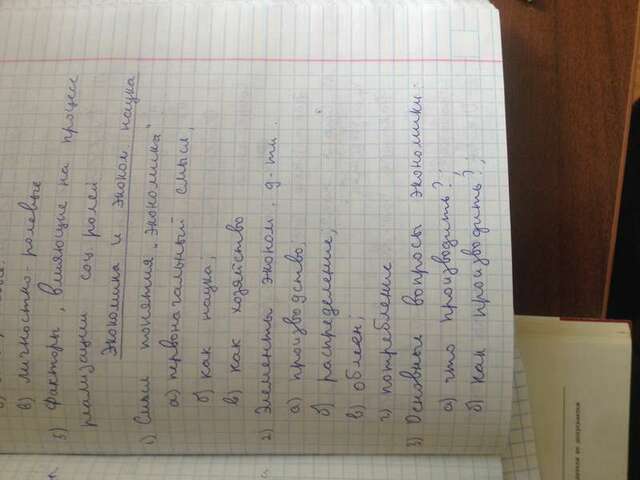 в) личностно-ролевые
5) факторы, влияющие на процесс
реализации соц ролей
Экономика и эконом. наука
1) Смысл понятия "экономика"
а) первоначальный смысл;
б) как наука;
в) как хозяйство
2) Элементы эконом. д-ти.
а) производство;
б) распределение;
в) обмен;
г) потребление
3) Основные вопросы экономики:
а) что производить?;
б) как производить?;